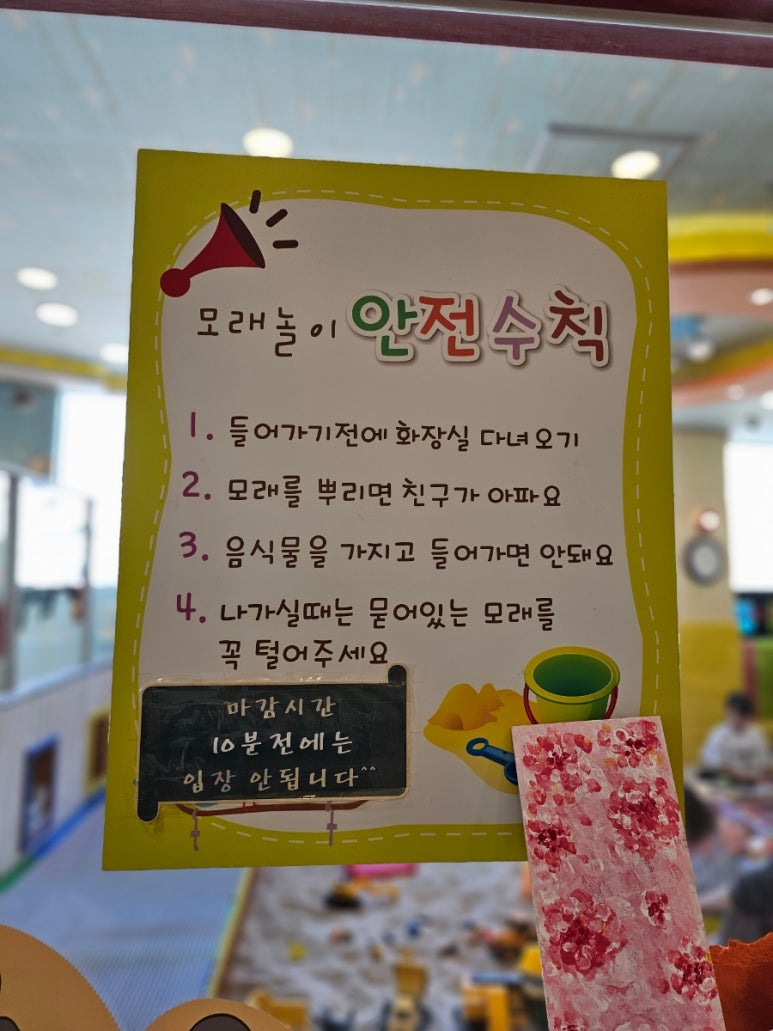 모래놀이 안전수칙
1. 들어가기전에 화장실 다녀오기
2. 모래를 뿌리면 친구가 아파요
3. 음식물을 가지고 들어가면 안돼요
4. 나가실때는 묻어있는 모래를
꼭 털어주세요
마감시간
10분전에는
입장 안됩니다^^